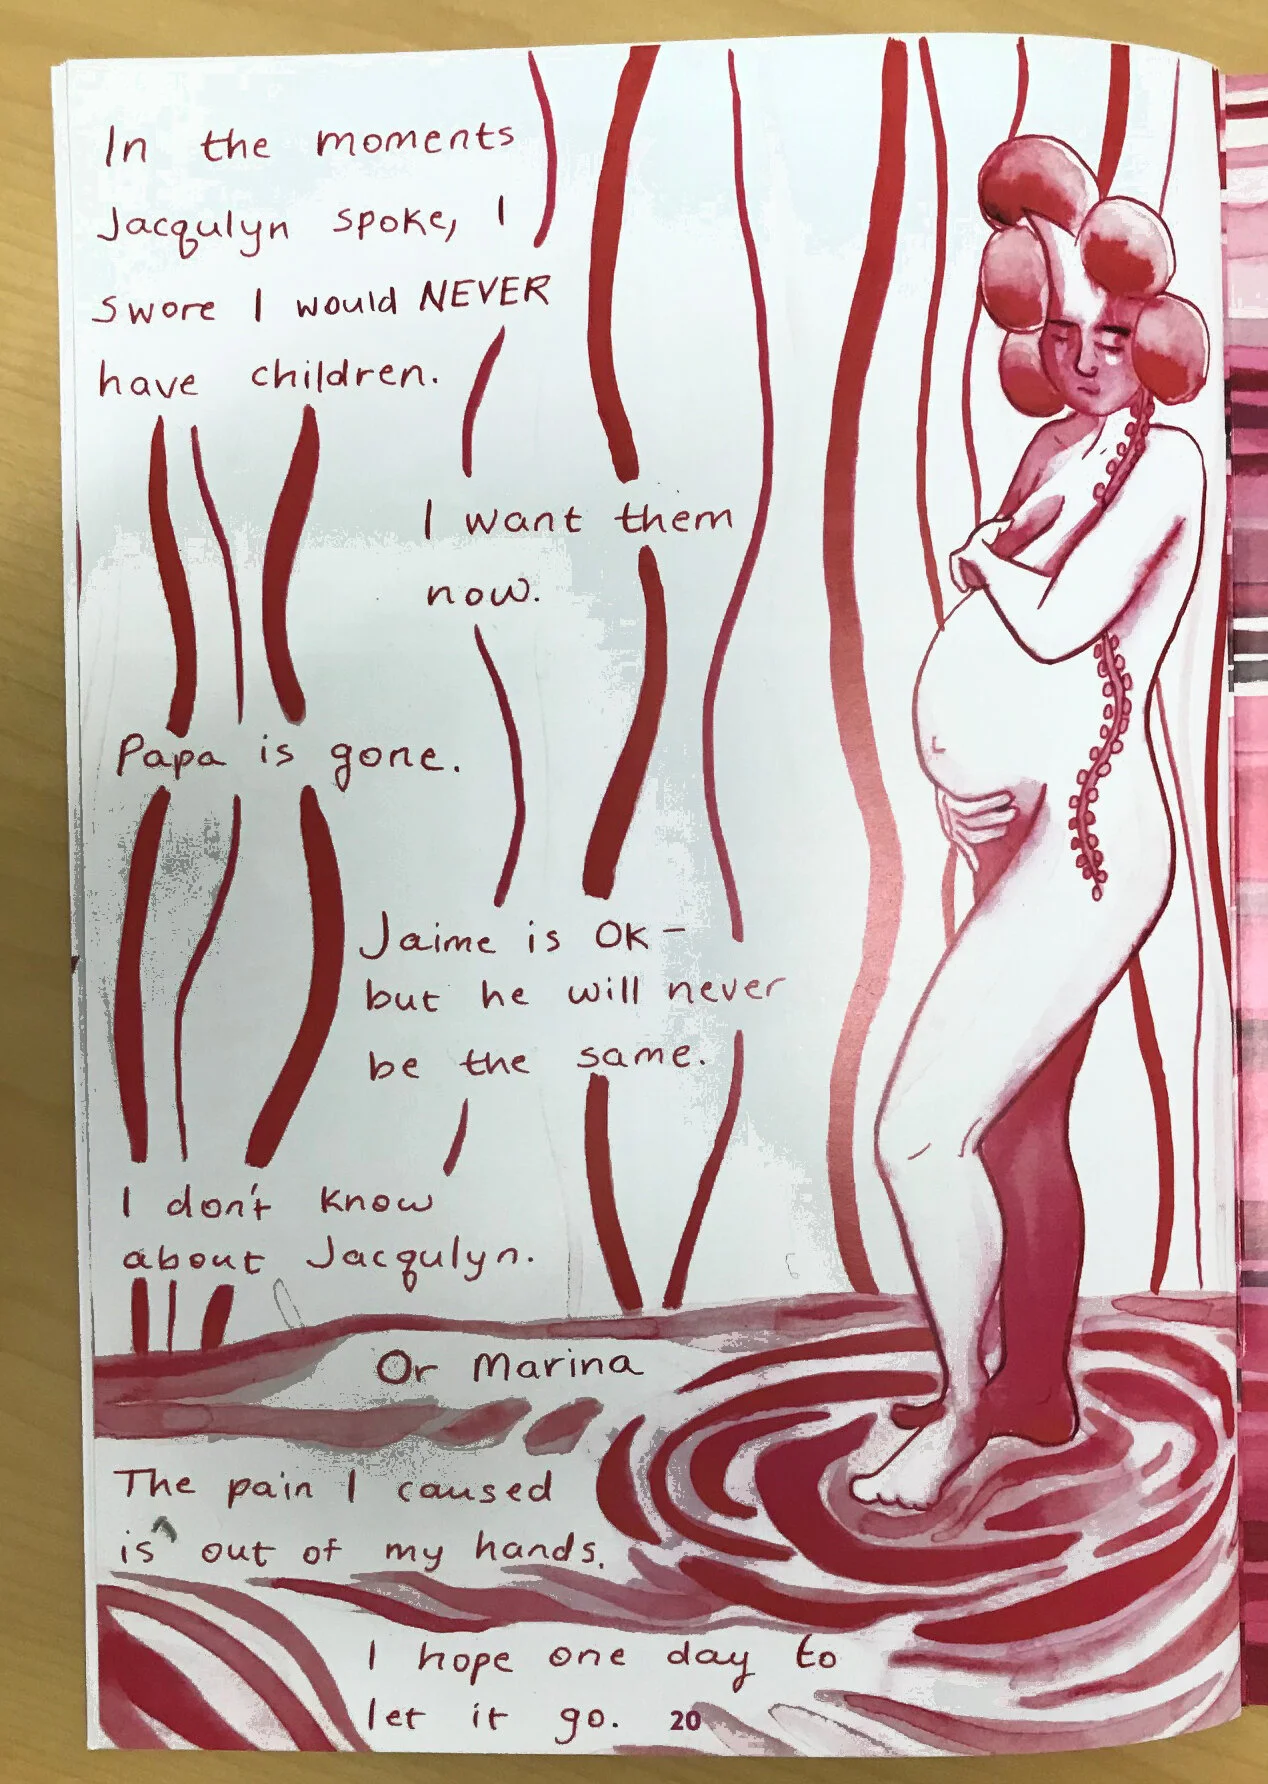 In the moments
Jacqulyn spoke, I
swore I would NEVER
have children.
I want them
now.
Papa is gone.
Jaime is OK –
but he will never
be the same.
I don't know
about Jacqulyn.
Or Marina
The pain I caused
is ^ out of my hands.
I hope one day to
let it go.
20